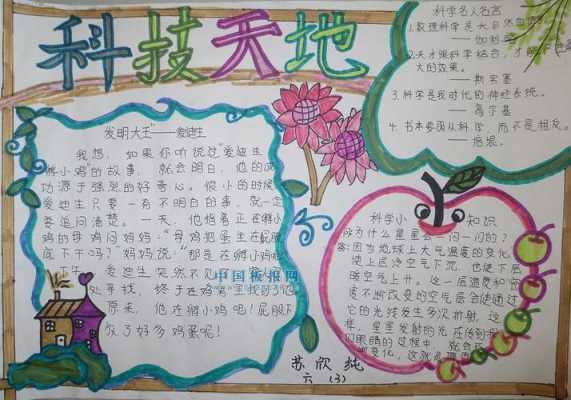 科技天地
发明大王"——爱迪生
我想，如果你听说过"爱迪生
孵小鸡"的故事，就会明白，他的成
功源于强烈的好奇心。很小的时候
爱迪生只要一有不明白的事，就一定
要追问清楚。一天，他指着正在孵小
鸡的母鸡问妈妈："母鸡把蛋坐在屁股
底下干吗？"妈妈说："那是在孵小鸡
爱迪生突然不见了
处寻找，终于在鸡窝里找到了他
原来，他在孵小鸡呢！屁股下
放了好多鸡蛋呢！
中国板报网
科学名人名言
1.数理科学是大自然
——伽利略
2.天才跟科学结合，才能
大的效果。
——斯宾塞
3.科学是我时代的神经系统。
——高尔基
4.书本要随从科学，而不是相反。
——培根。
科学小知识
问为什么星星会一闪一闪的？
答：因为地球上大气温度的变化，
使上层冷空气下沉，也使下层
暖空气上升。这一层温度和密
度不断改变的空气层会使通过
它的光线发生多次折射，这
样，星星发射的光在传到我
们眼睛的过程中，就会
变化，这就
苏欣纯
六（3）